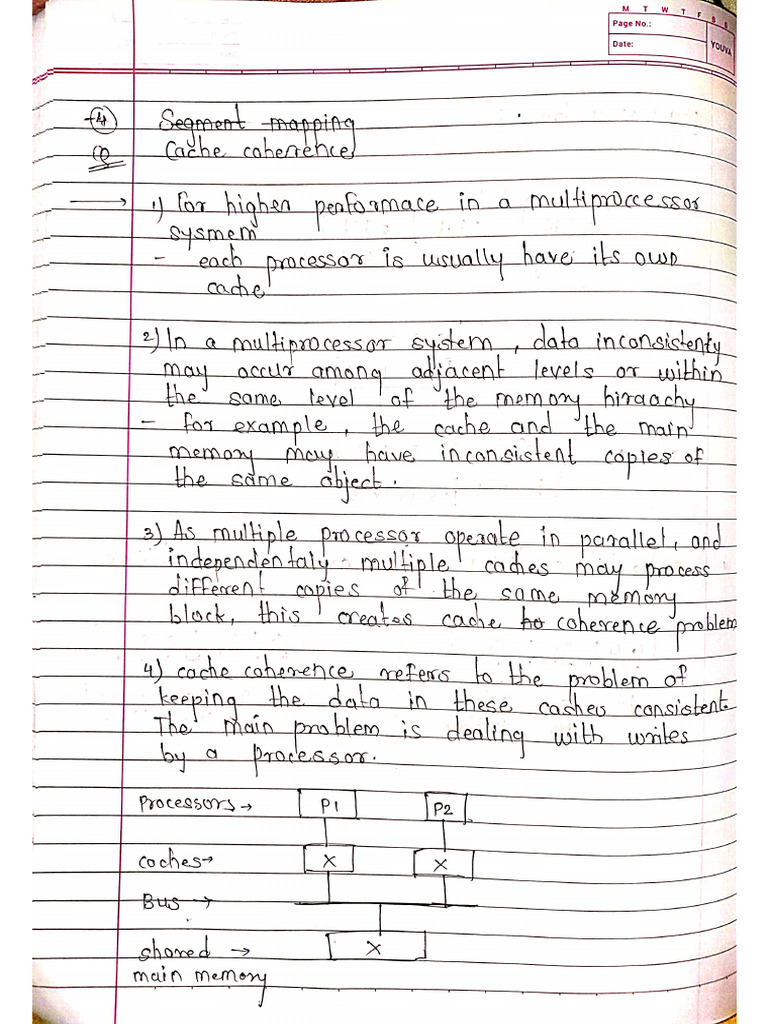 M T W T F S S
Page No.:
Date:
YOUVA
4 Segment mapping
Q Cache coherrence
→ 1) For higher performace in a multiproccessor
sysmem
- each processor is usually have its own
cache
2) In a multiprocessor system, data inconsistenty
may occur among adjacent levels or within
the same level of the memory hiraachy
- for example, the cache and the main
memory may have inconsistent copies of
the same object.
3) As multiple processor operate in parallel, and
independentaly multiple caches may process
different copies of the same memory
block, this creates cache ho coherence problem
4) cache coherence refers to the problem of
keeping the data in these cashes consistent.
The main problem is dealing with writes
by a processor.
Processors → P1 P2
caches → X X
Bus →
shared → X
main memory